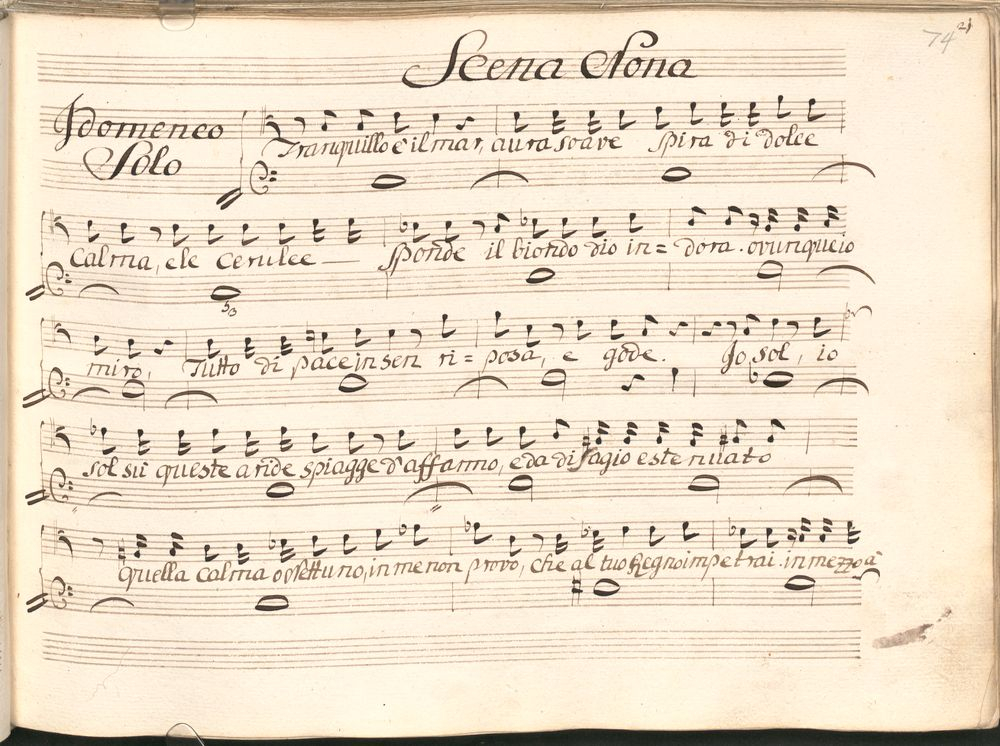 74 21
Scena Nona
Idomeneo
Solo
Tranquillo è il mar, aura soave Spira di dolce
Calma, e le Cerulee Sponde il biondo dio in= dora. ovunque io
miro, Tutto di pace in sen ri= posa, e gode. Io sol, io
sol sù queste aride spiagge d'affanno, e da disagio estenuato
53
quella calma o Nettuno, in me non provo, che al tuo Regno impetrai. in mezzo a